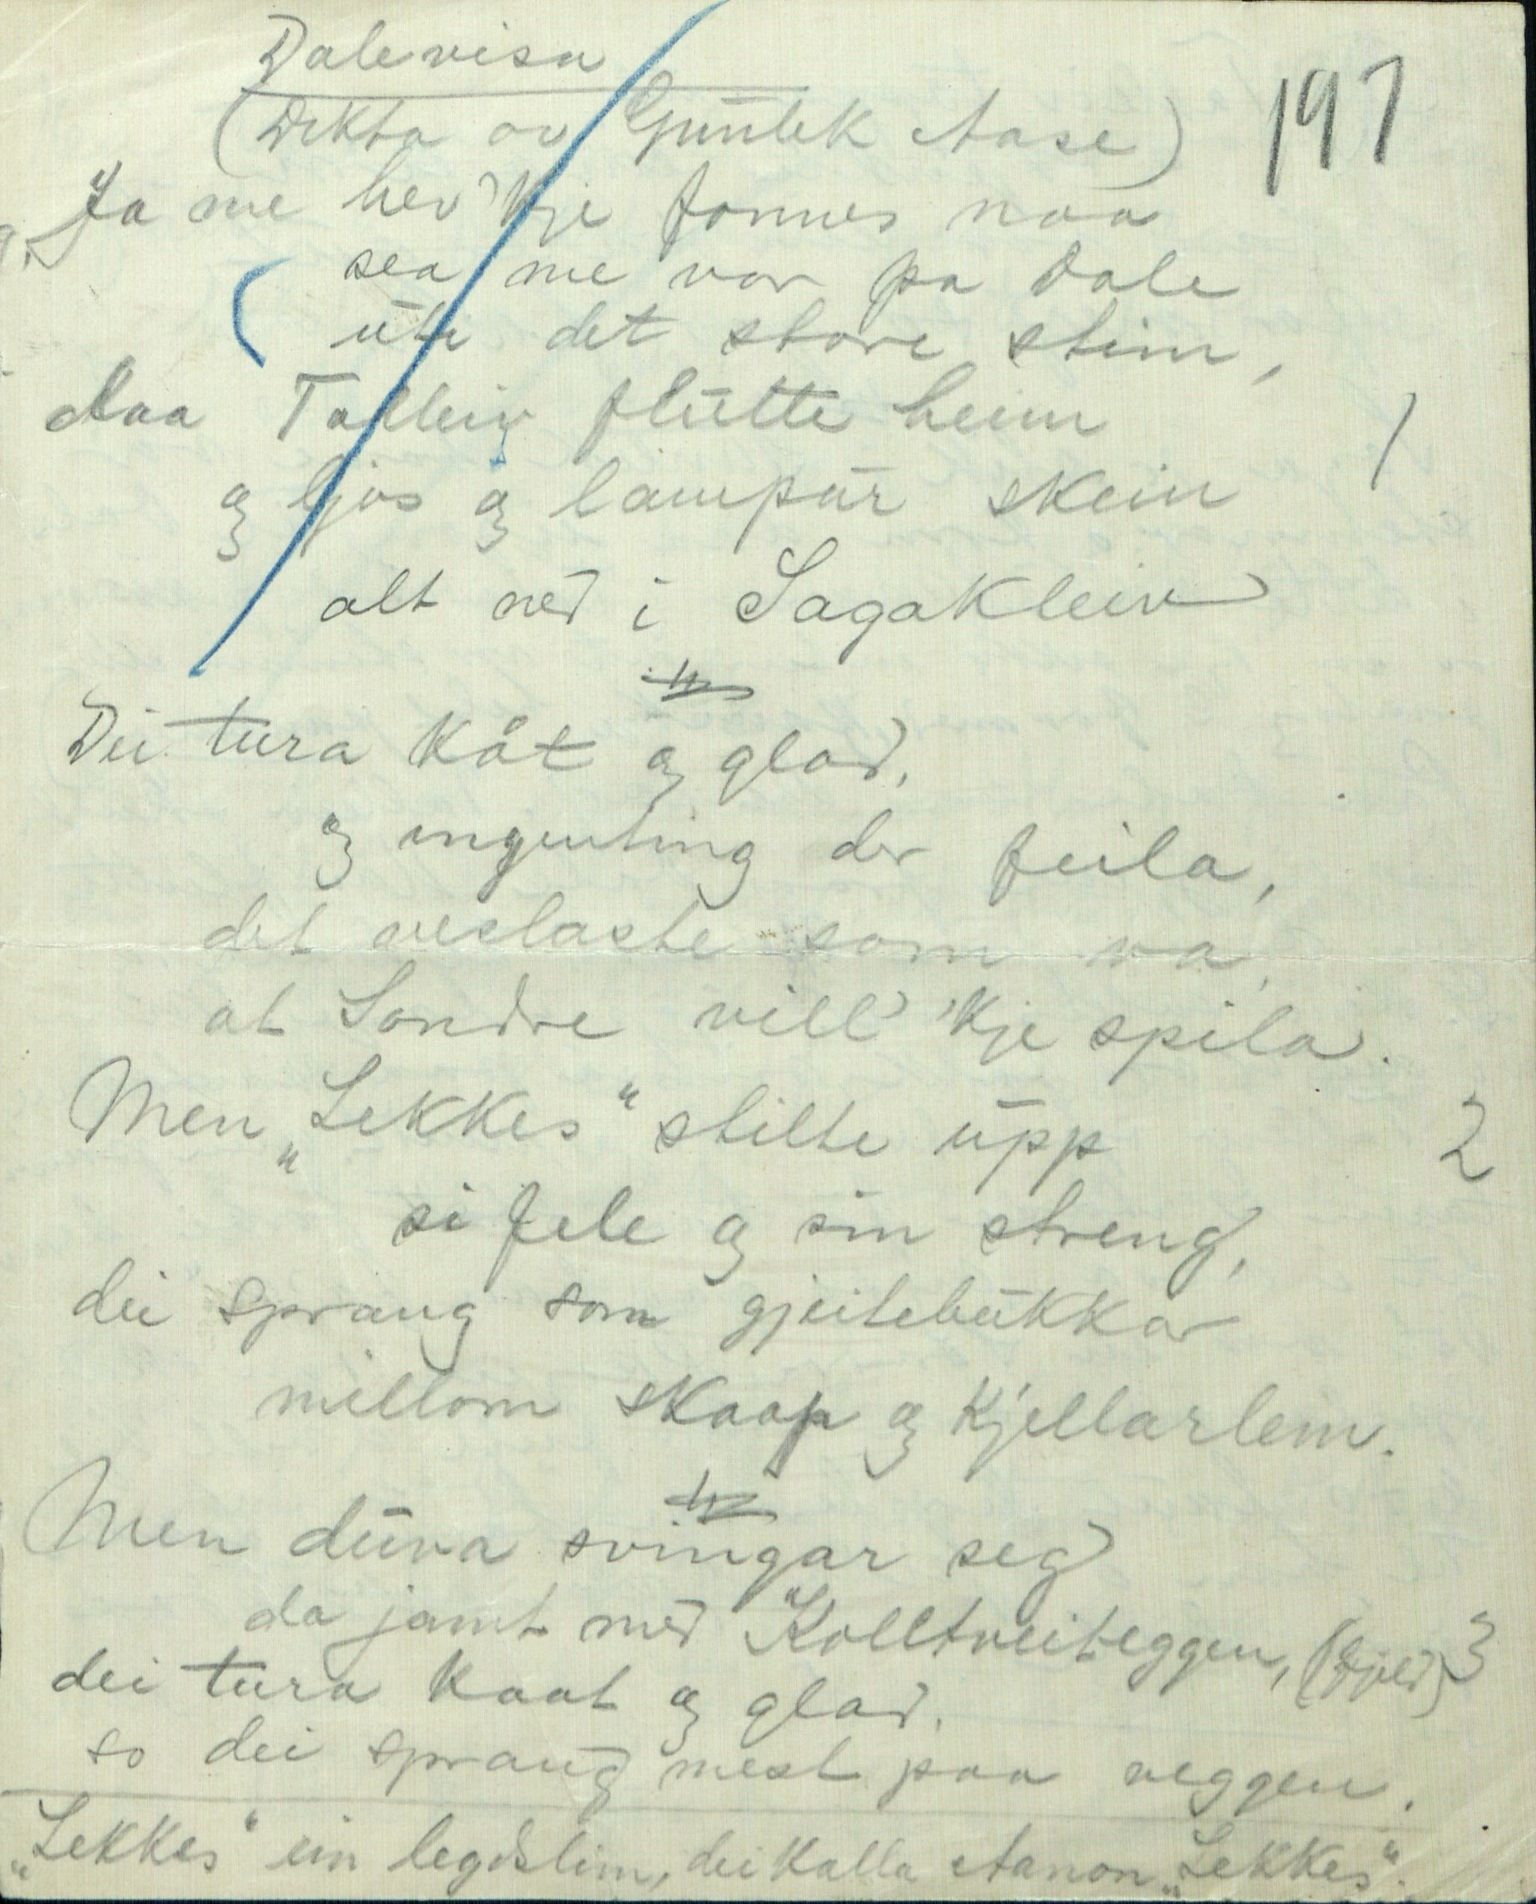 Dalevisa
197
(Dikta av Gunlek Aase)
Ja me hev 'kje fonnes naa
sea me var pa Dale
ute det store stim,
daa Talleiv flutte heim 1
og ljos og lampur skein
alt ned i Sagakleiv
Dei tura kåt og glad,
og ingenting der feila,
det veslaste som va,
at Sondre vill' 'kje spila.
Men „Lekkes" stilte upp 2
si fele og sin streng,
dei sprang som gjeitebukkar
millom skaap og kjellarlem.
Men duva svingar seg
da jamt med Kolltveiteggen, (fjell) 3
dei tura kaat og glad,
so dei sprang mest paa veggen.
„Lekkes" ein legdslim, dei kalla Aanon „Lekkes".